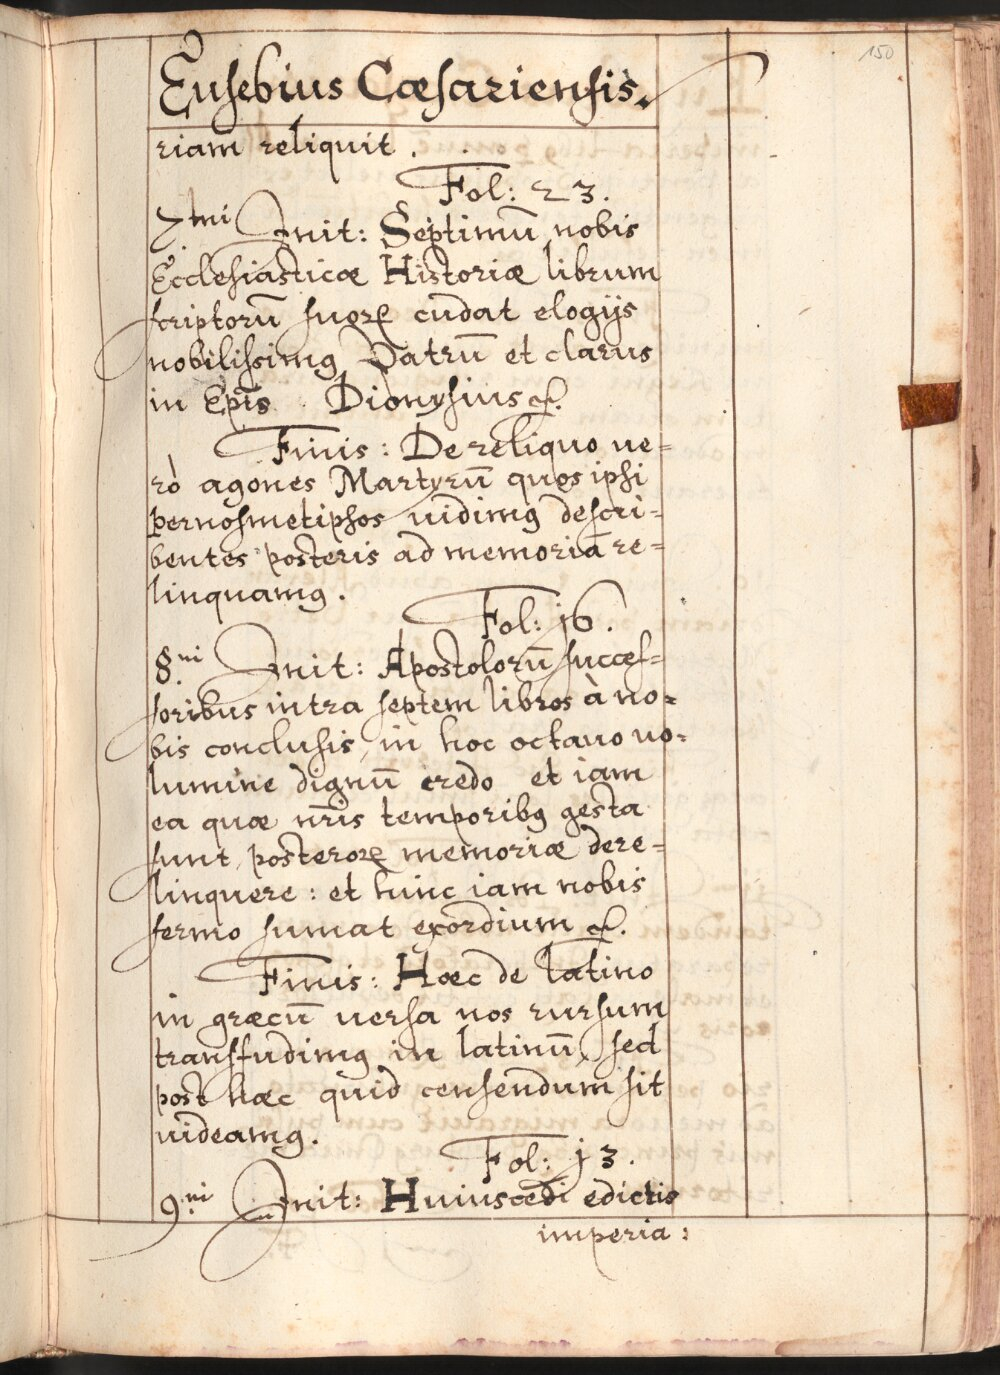 150
Eusebius Cæsariensis.
riam reliquit.
Fol: 23.
7.mi Init: Septimū nobis
Ecclesiasticæ Historiæ librum
scriptorū suoꝝ cudat elogijs
nobilissimꝰ Patrū et clarus
in Ep̄is Dionysius &.
Finis: De reliquo ue=
rò agones Martyrū quos ipsi
pernosmetipsos uidimꝰ descri=
bentes posteris ad memoriā re=
linquamꝰ.
Fol: 16.
8.ui Init: Apostolorū succes=
soribus intra septem libros à no=
bis conclusis, in hoc octauo uo=
lumine dignū credo et iam
ea quæ nr̄is temporibꝰ gesta
sunt posteroꝝ memoriæ dere=
linquere: et hinc iam nobis
sermo sumat exordium &.
Finis: Hæc de latino
in græcū uersa nos rursum
transfudimꝰ in latinū, sed
post hæc quid censendum sit
uideamꝰ.
Fol: 13.
9.ni Init: Huiuscedi edictis
imperia: